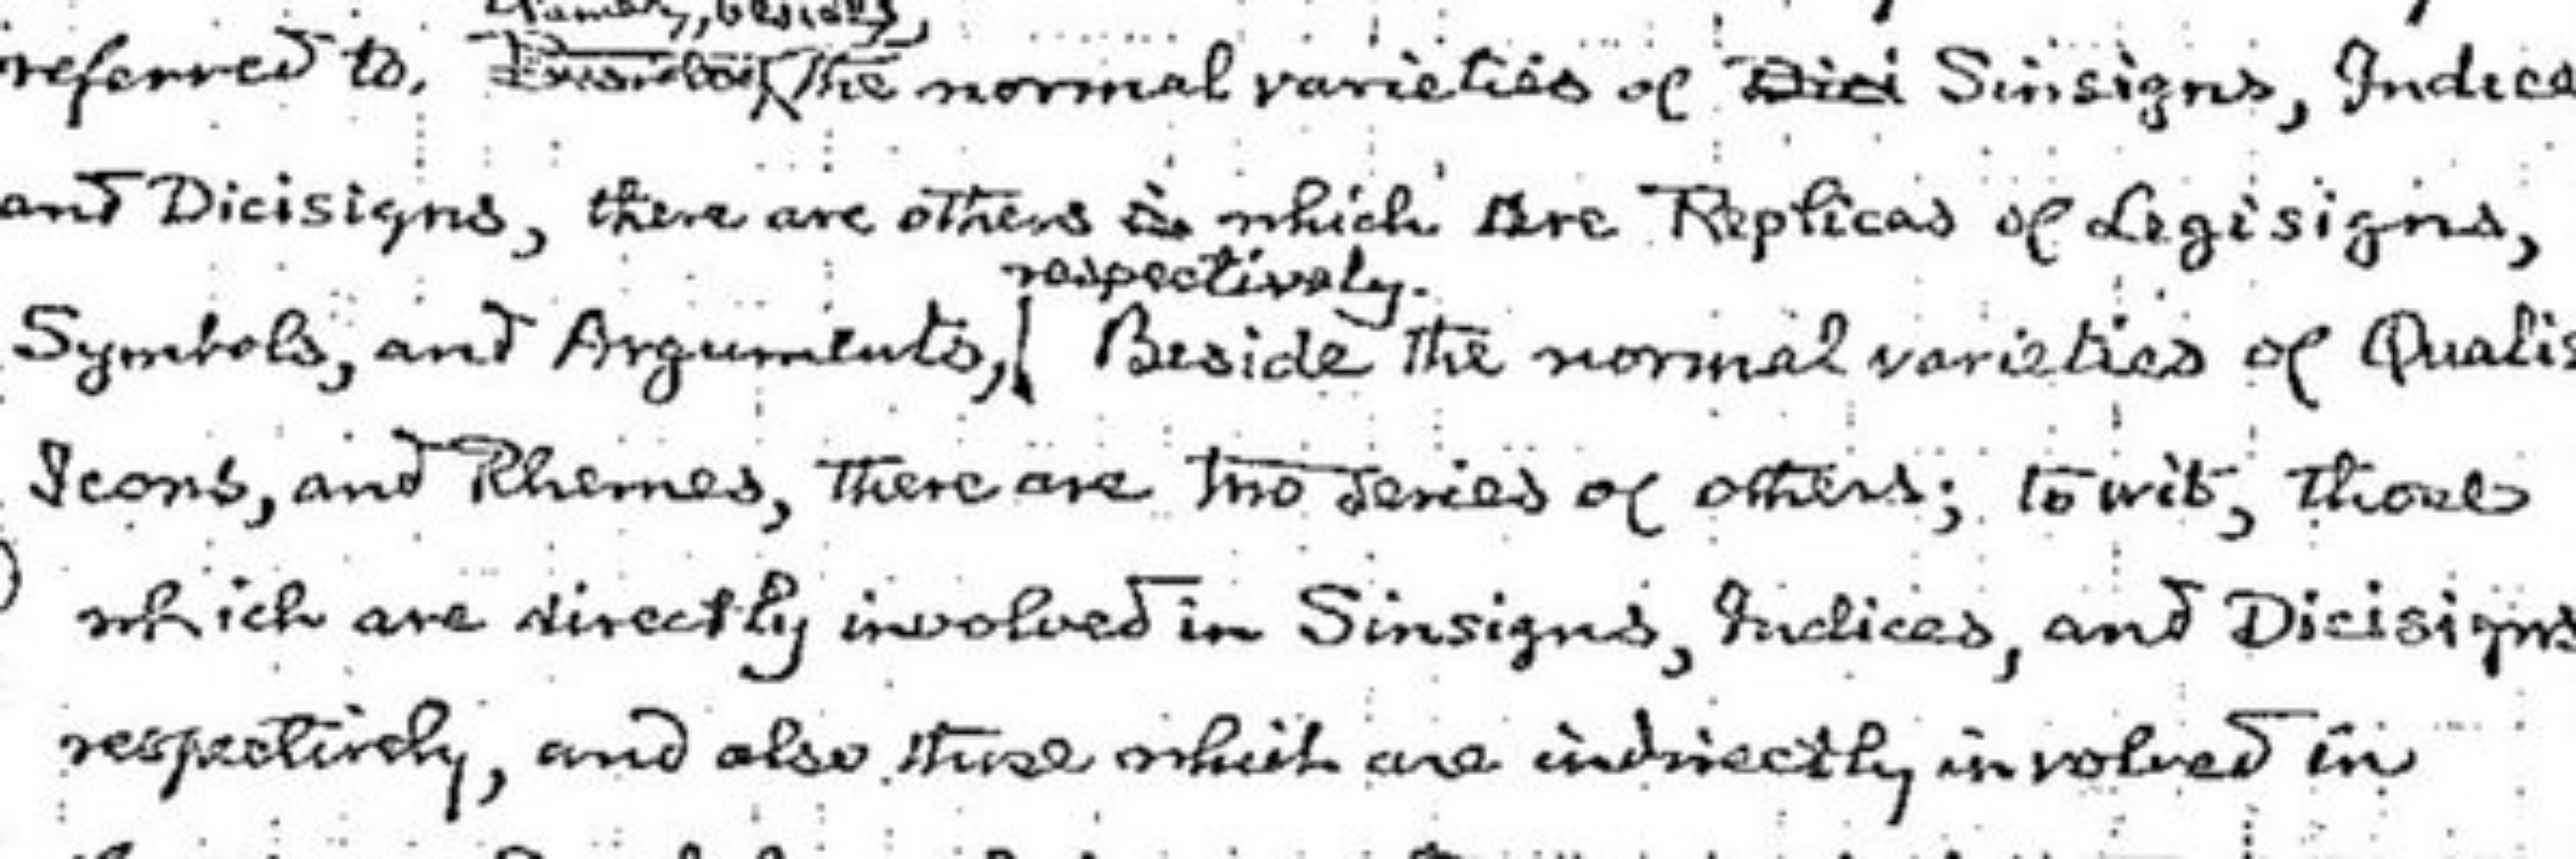 Namely, besides,
referred to. the normal varieties of Dici Sinsigns, Indice
and Dicisigns, there are others in which are Replicas of Legisigns,
respectively.
Symbols, and Arguments, Beside the normal varieties of Qualis
Icons, and Rhemes, there are two series of others; to wit, those
which are directly involved in Sinsigns, Indices, and Dicisigns
respectively, and also those which are indirectly involved in